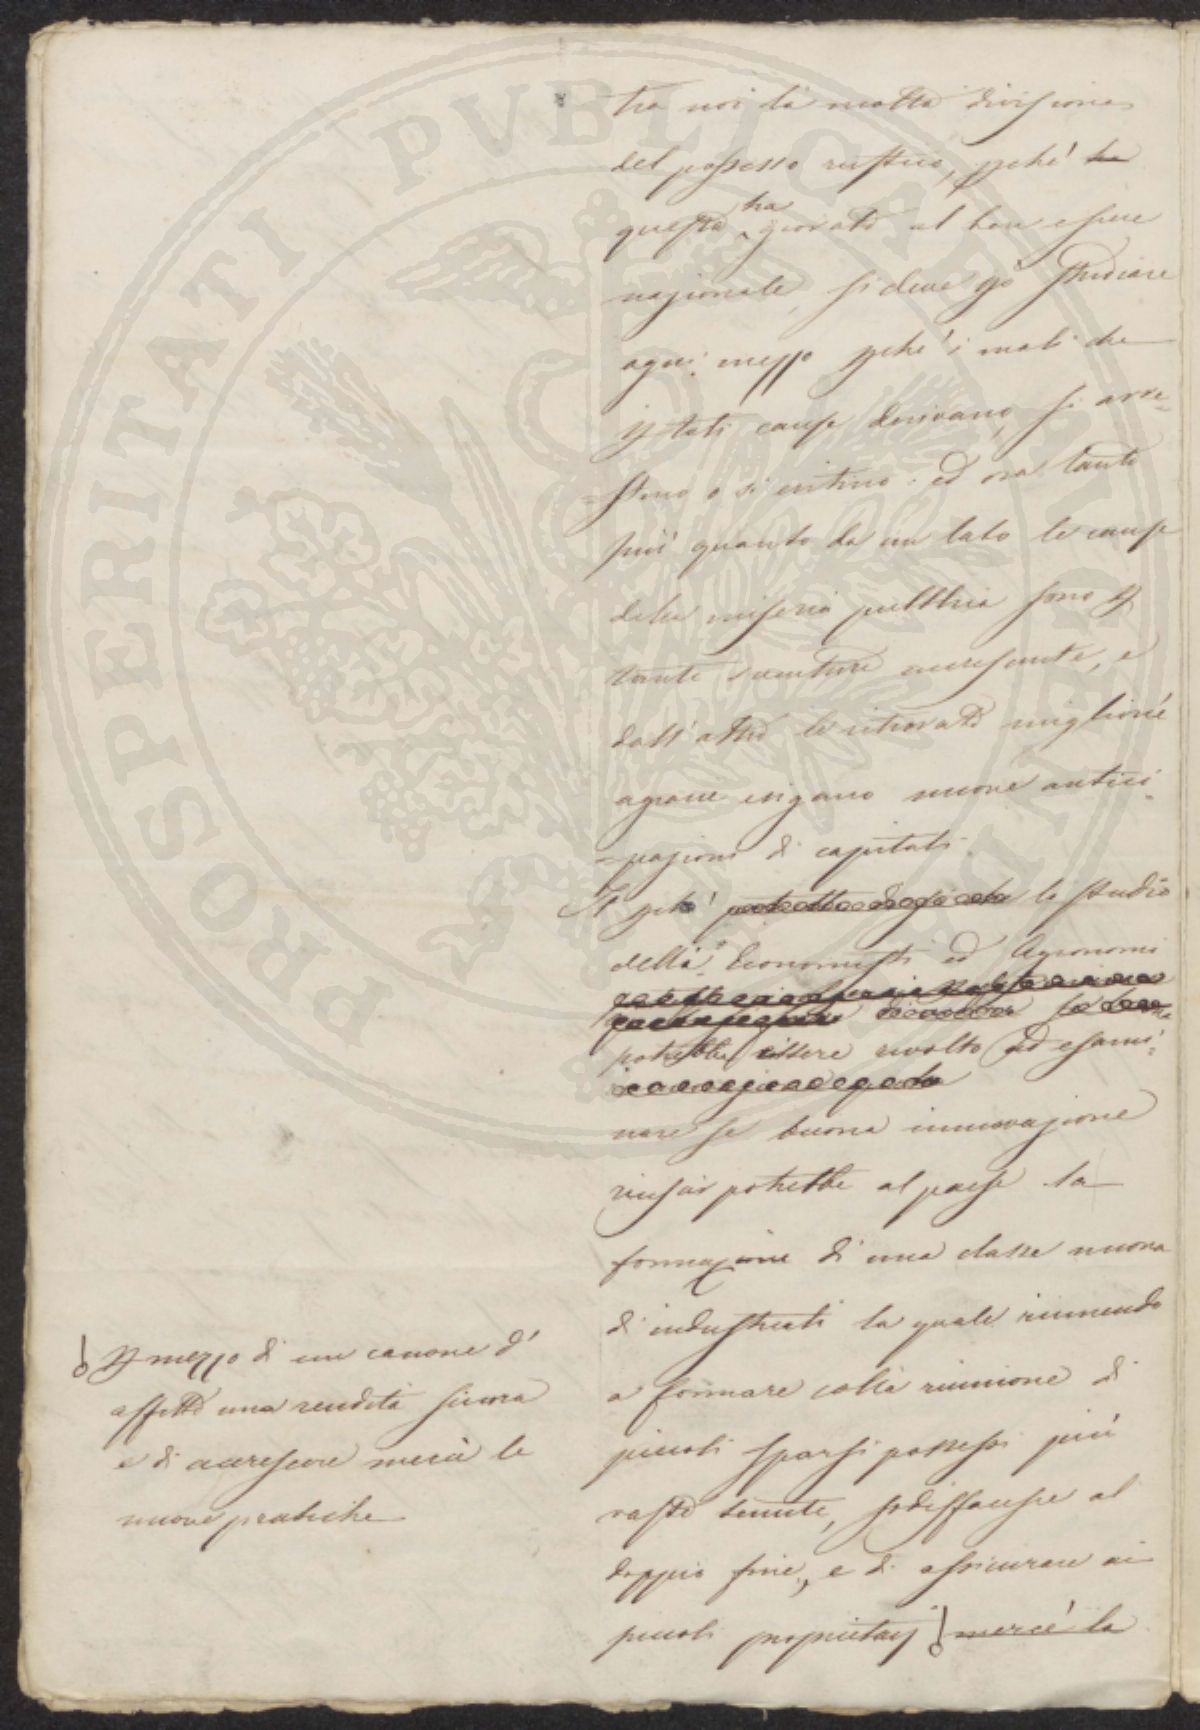 tra noi la molta divisione
del possesso rustico, pchè ha
questo ha giovato al ben essere
nazionale, si deve pò studiare
ogni mezzo pchè i mali che
p tali cause derivano, si arre-
=stino o si evitino: ed ora tanto
più quanto da un lato le cause
della miseria pubblica sono p
tante sventure accresciute, e
dall'altro le ritrovate migliorie
agrarie esigano nuove antici-
=pazioni di capitali.
lo studio
delli Economisti ed Agronomi
potrebbe essere rivolto ad esami-
nare se buona innovazione
riuscir potrebbe al paese la
formazione di una classe nuova
di industriali la quale riunendo
a formare colla riunione di
piccoli sparsi possessi più
vaste tenute, sodisfacesse al
doppio fine, e di assicurare ai
piccoli proprietarj mercè la
p mezzo di un canone d'
affitto una rendita sicura
e di accrescere mercè le
nuove pratiche
PROSPERITATI PVBLICAE